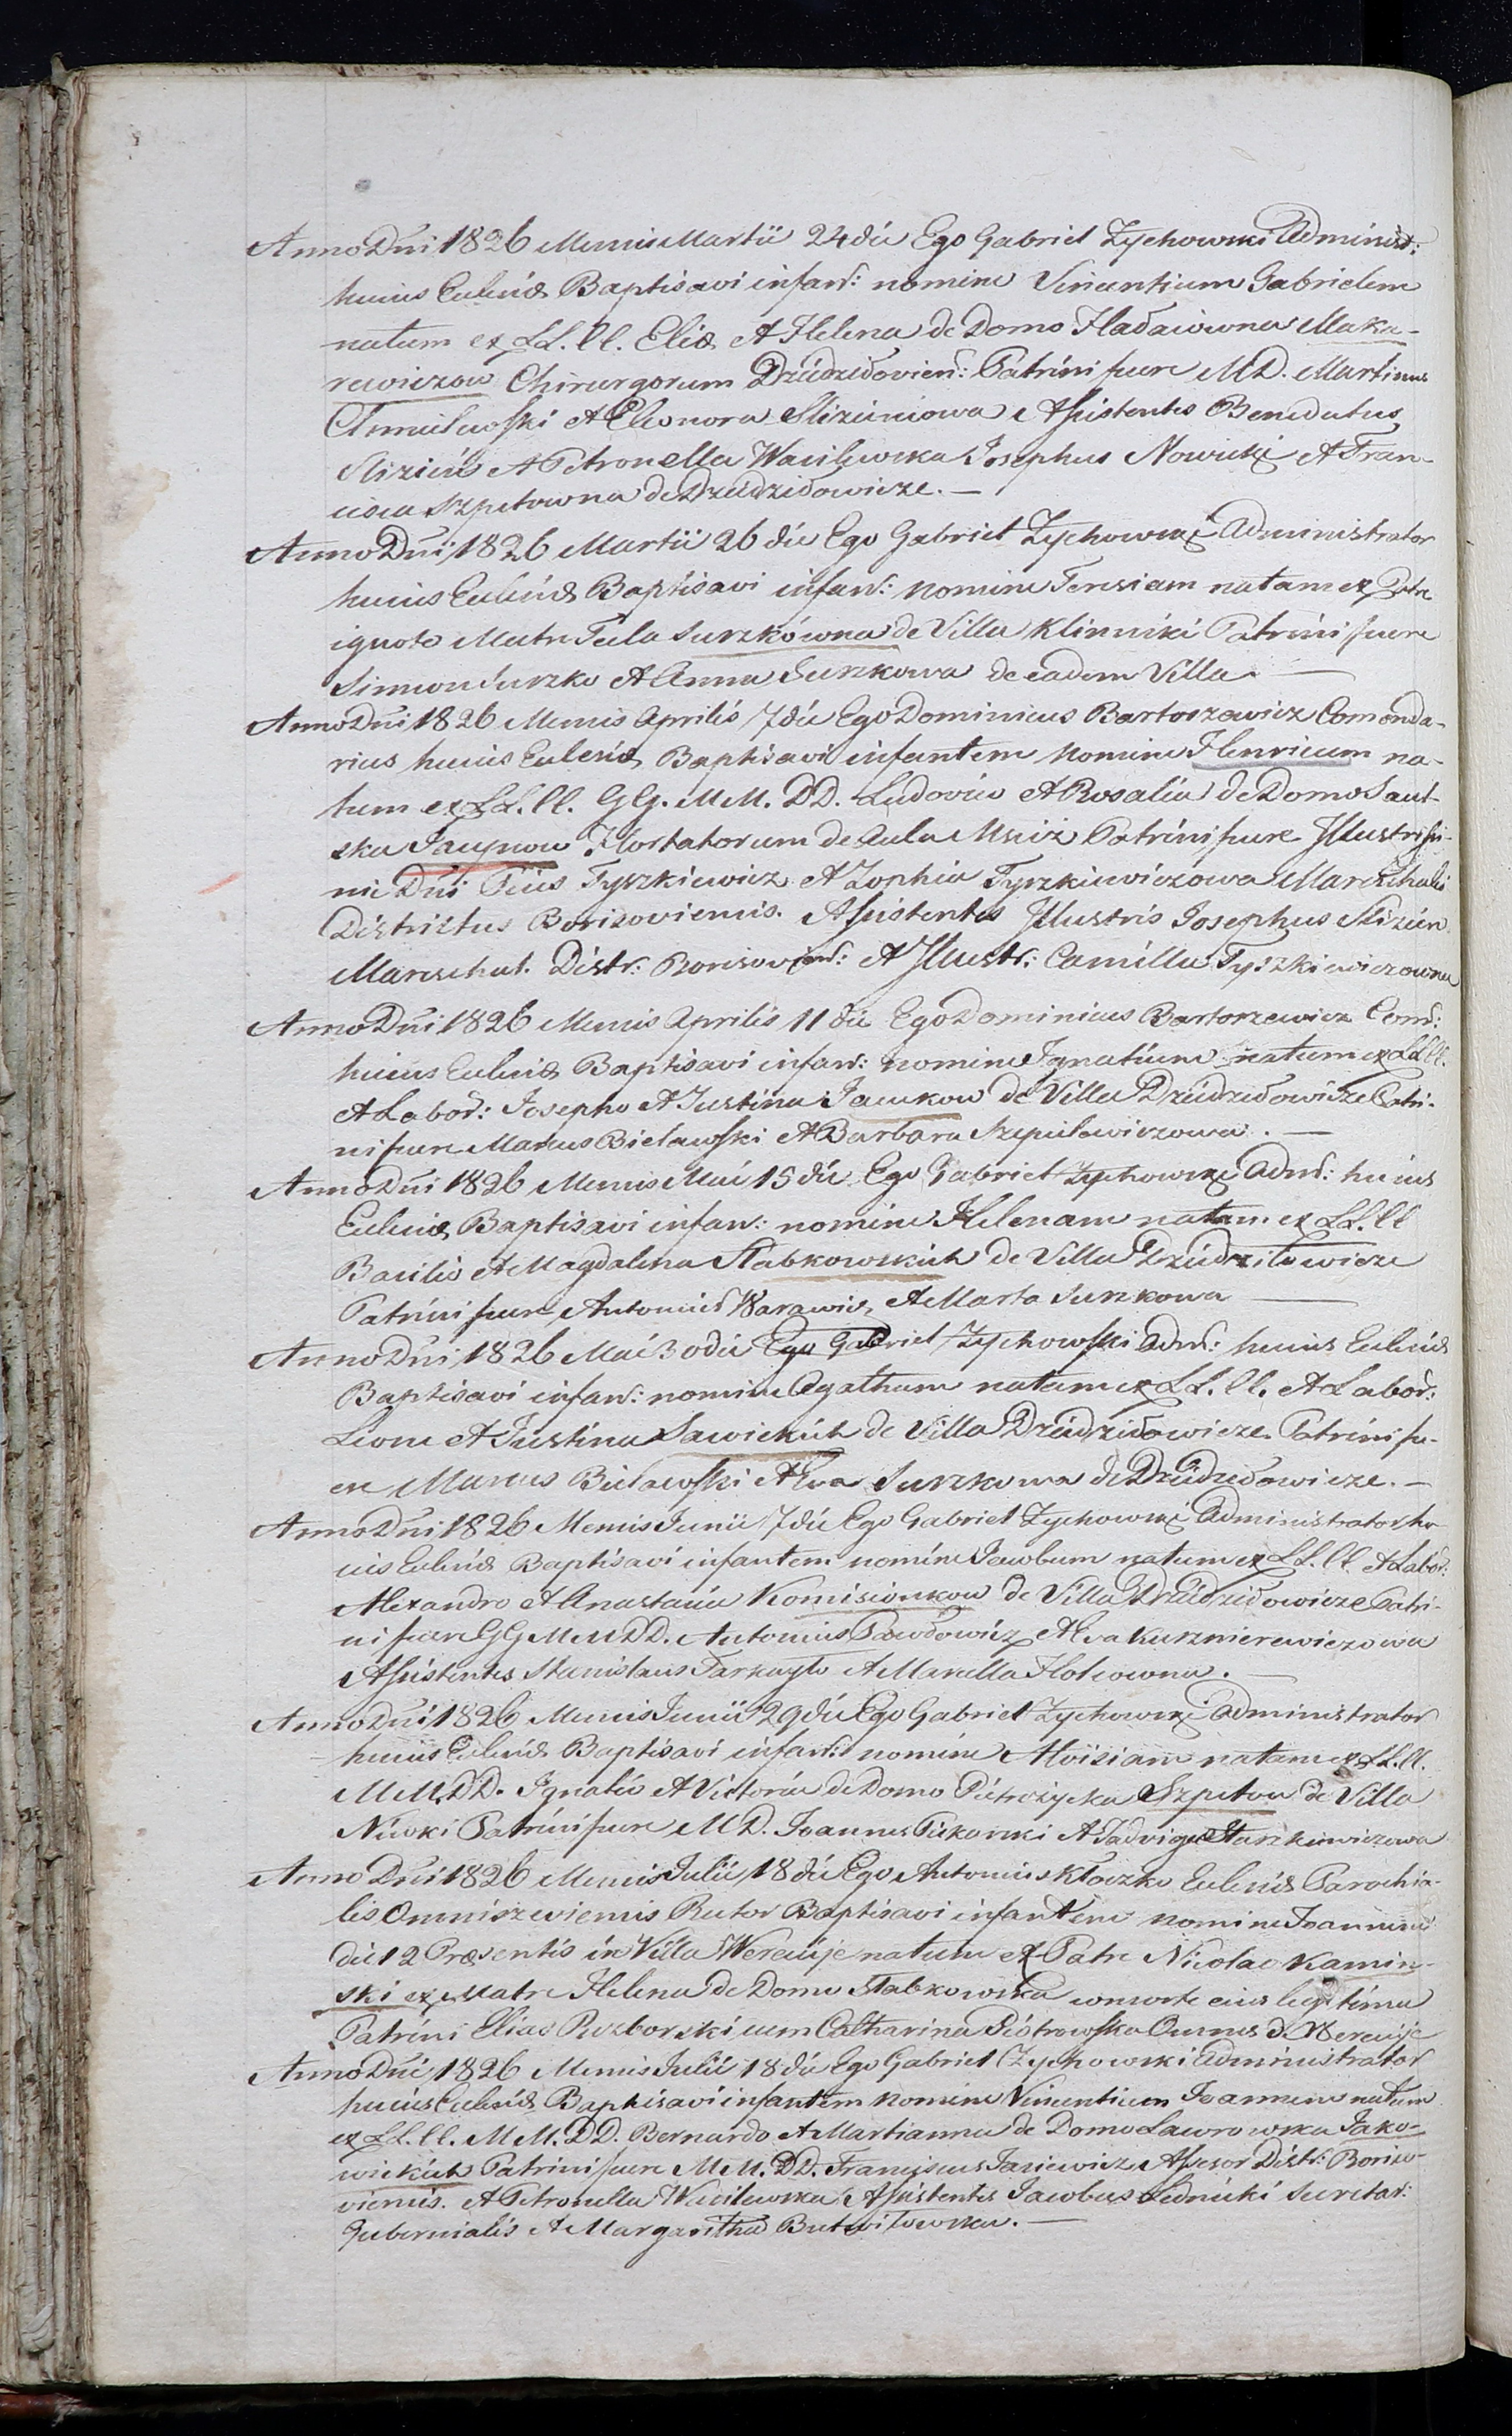 Anno Dni 1826 Mensis Martii 24 die Ego Gabriel Zychowski Administ:
huius Eclesiæ Baptisavi infan: nomine Vincentium Gabrielem
natum ex LL. ll. Elia et Helena de Domo Hładaiowna Maka-
rewiczow Chirurgorum Dziedziłovien: Patrini fuere MD. Martinus
Chmielewski et Eleonora Slizieniowa Assistentes Benedictus
Slizień et Petronella Wasilewska Josephus Nowicki et Fran-
cisca Szpetowna de Dziedziłowicze. —
Anno Dni 1826 Martii 26 die Ego Gabriel Zychowski Administrator
huius Eclesiæ Baptisavi infan: nomine Teresiam natam ex Patre
ignoto Matre Tecla Surzkówna de Villa Klinniki Patrini fuere
Simon Surzko et Anna Surzkowa de eadem Villa. —
Anno Dni 1826 Mensis Aprilis 7 die Ego Dominicus Bartoszewicz Comenda-
rius huius Eclesiæ Baptisavi infantem nomine Henricum na-
tum ex LL. ll. GG. MM. DD. Ludovico et Rosalia de Domo
Hortatorum de Aula Patrini fuere Illustrissi-
mi Dni Pius Tyszkiewicz et Zophia Tyszkiewiczowa Mareschalis
Districtus Borisoviensis. Assistentes Illustris Josephus Slizien
Mareschal. Distr: Borisovien: et Illustr: Camilla Tyszkiewiczowna
Anno Dni 1826 Mensis Aprilis 11 die Ego Dominicus Bartoszewicz Com:
huius Eclesiæ Baptisavi infan: nomine Ignatium natum ex LL ll.
et Labor: Josepho et Justina Jacukow de Villa Dziedziłowicze Patri-
ni fuere Marcus Bielawski et Barbara Szepielewiczowa. —
Anno Dni 1826 Mensis Maii 15 die Ego Gabriel Zychowski Adm: huius
Eclesiæ Baptisavi infan: nomine Helenam natam ex LL. ll
Basilio et Magdalena Słabkowskich de Villa Dziedziłowicze
Patrini fuere Antonius Warawicz et Marta Surzkowa —
Anno Dni 1826 Maii 30 die Ego Gabriel Zychowski Adm: huius Eclesiæ
Baptisavi infan: nomine Agatham natam ex LL. ll. et Labor:
Leone et Justina Sawickich de Villa Dziedziłowicze. Patrini fu-
ere Marcus Bielawski et Eva Surzkowa de Dziedziłowicze. —
Anno Dni 1826 Mensis Junii 7 die Ego Gabriel Zychowski Administrator hu-
ius Eclesiæ Baptisavi infantem nomine Jacobum natum ex LL. ll. et Labor:
Alexandro et Anastasia Komisionkow de Villa Dziedziłowicze Patri-
ni fuere GG MM DD. Antonius Pawłowicz et Eva Kuzmierewiczowa
Assistentes Stanislaus Tarkayło et Marella Hołowna. —
Anno Dni 1826 Mensis Junii 29 die Ego Gabriel Zychowski Administrator
huius Eclesiæ Baptisavi infan: nomine Aloisiam natam ex LL. ll.
MM. DD. Ignatio et Victoria de Domo Pietrożycka Szpetow de Villa
Niwki Patrini fuere MD. Joannes Piekarski et Jadviga Stankiewiczowa
Anno Dni 1826 Mensis Julii 18 die Ego Antonius Kłoczko Eclesiæ Parochia-
lis Omniszeviensis Rector Baptisavi infantem nomine Joannem
die 12 Præsentis in Villa Wereuje natum ex Patre Nicolao Kamin-
ski ex Matre Helena de Domo Słabkowska consorte eius legitima
Patrini Elias Rozborski cum Catharina Piotrowska Omnes d. Wereuje
Anno Dni 1826 Mensis Julii 18 die Ego Gabriel Zychowski Administrator
huius Eclesiæ Baptisavi infantem nomine Vincentium Joannem natum
ex LL. ll. MM. DD. Bernardo et Martianna de Domo Lawrowska Jako-
wickich Patrini fuere MM. DD. Franciscus Jasiewicz Assesor Distr: Boriso-
viensis. et Petronella Wasilewska Assistentes Jacobus Lednicki Secretar:
Gubernialis et Margaritha Butwiłowska. —